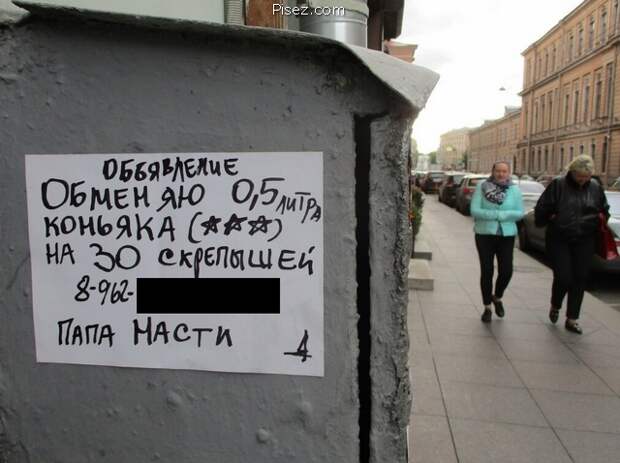 Pisez.com
ОБЪЯВЛЕНИЕ
ОБМЕНЯЮ 0,5 ЛИТРА
КОНЬЯКА (★★★)
НА 30 СКРЕПЫШЕЙ
8-962-
ПАПА НАСТИ